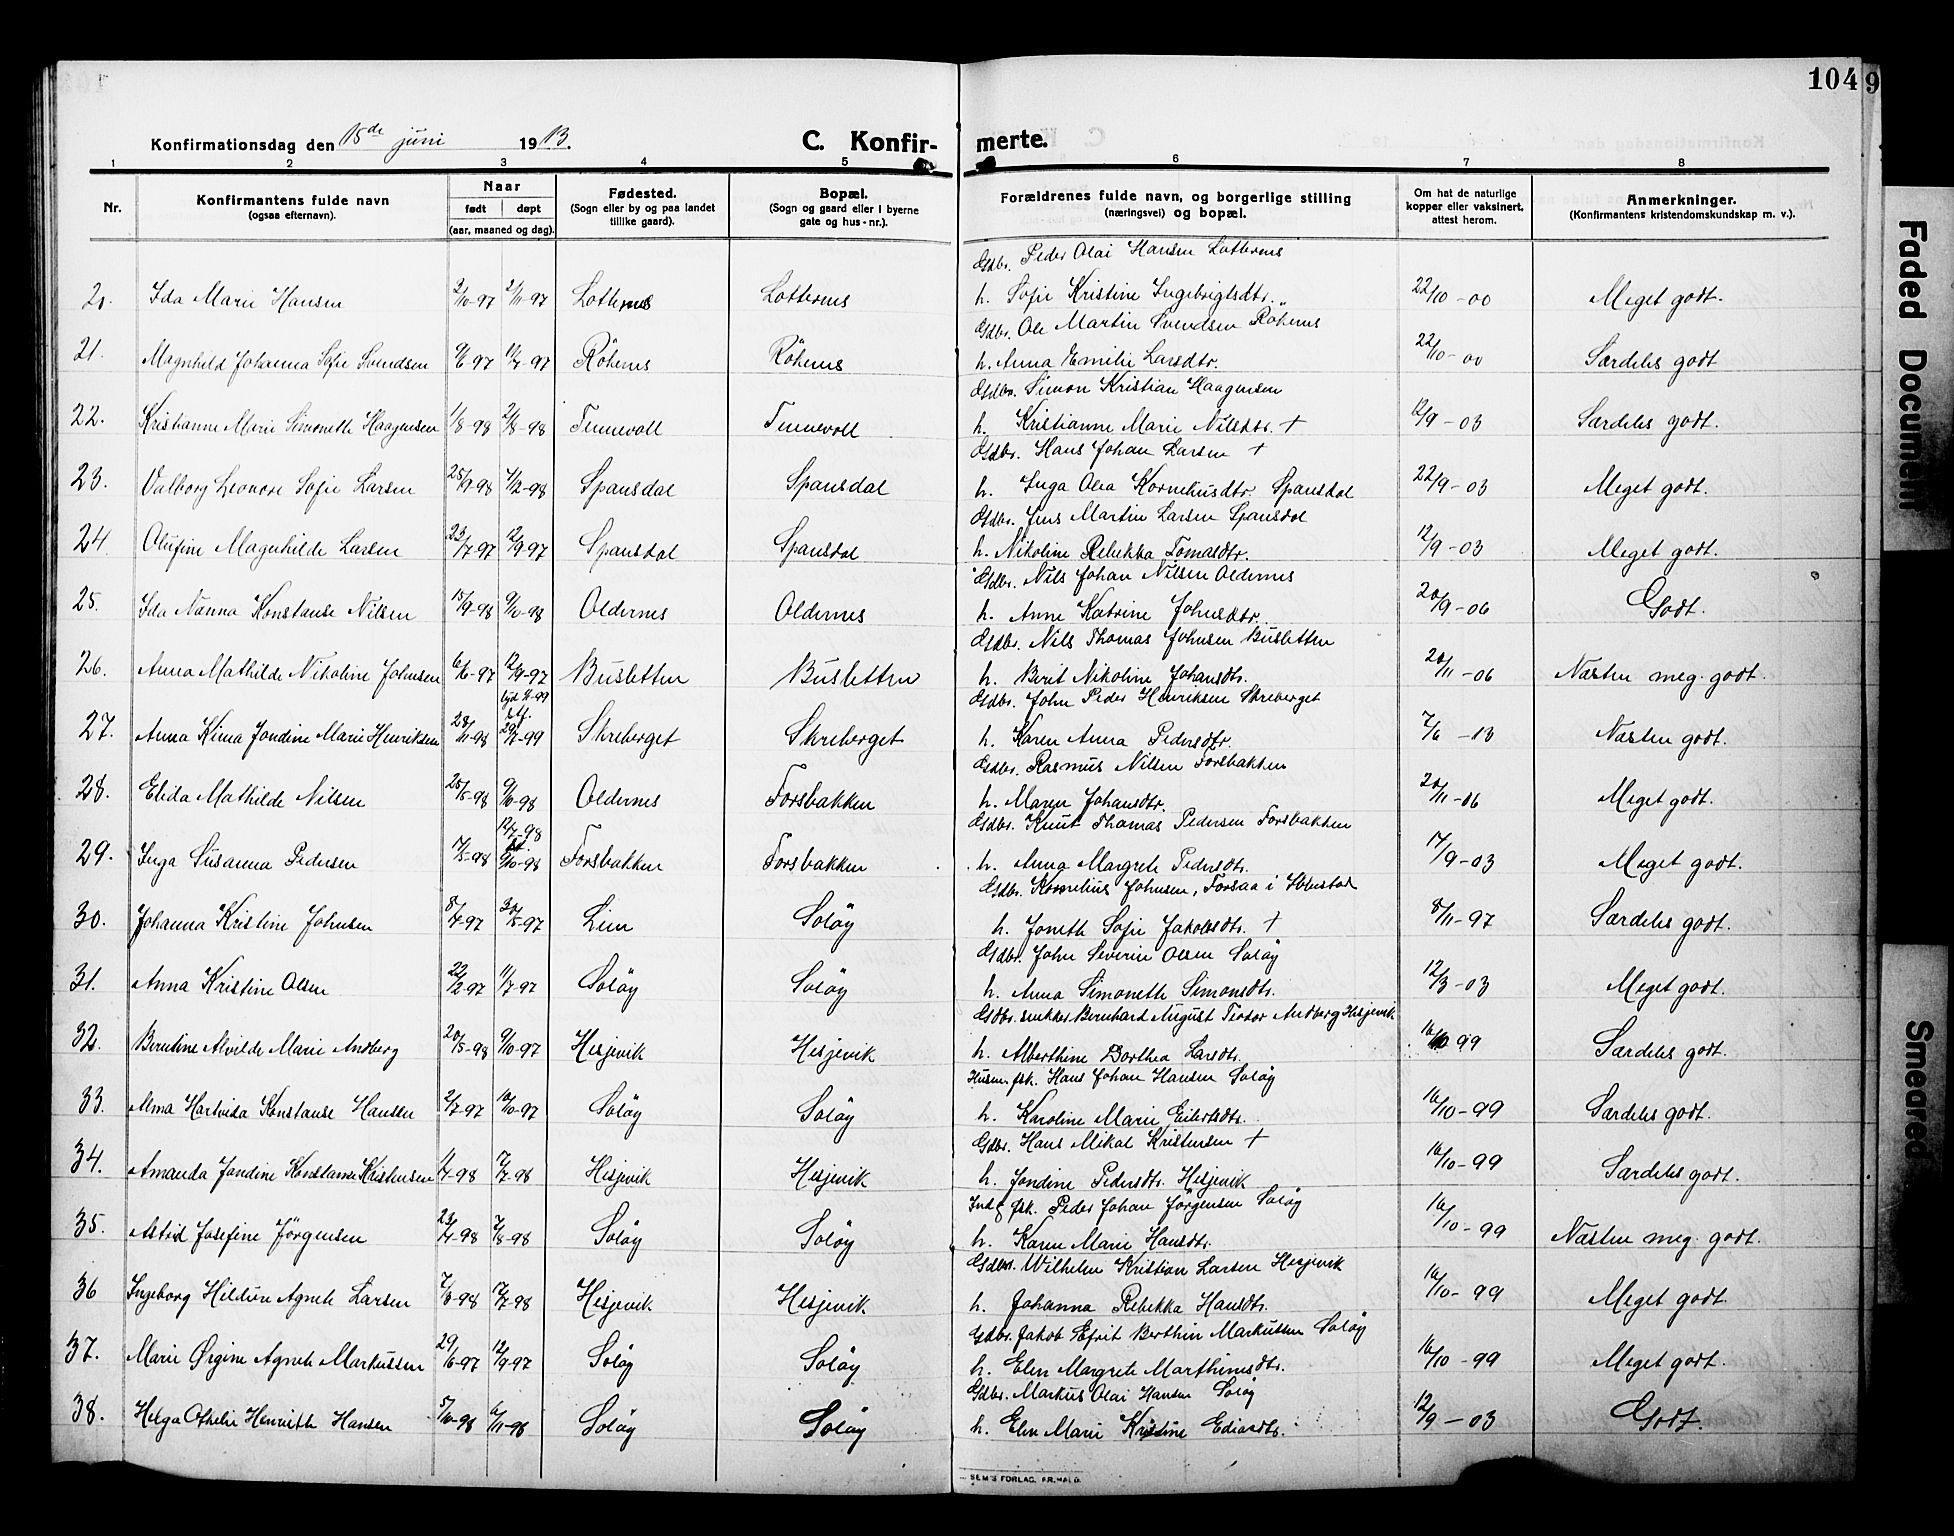 104
9
Konfirmationsdag den 15de juni 1913.
C. Konfirmerte.
1 2 3 4 5 6 7 8
Nr.
Konfirmantens fulde navn
(ogsaa efternavn).
Naar
født døpt
(aar, maaned og dag).
Fødested.
(Sogn eller by og paa landet
tillike gaard).
Bopæl.
(Sogn og gaard eller i byerne
gate og hus-nr.).
Forældrenes fulde navn, og borgerlige stilling
(næringsvei) og bopæl.
Om hat de naturlige
kopper eller vaksinert,
attest herom.
Anmerkninger.
(Konfirmantens kristendomskundskap m. v.).
Gdbr. Peder Olai Hansen Lotternes
20. Ida Marie Hansen 2/10-97 21/11-97 Lotternes Lotternes h. Sofie Kristine Ingebrigtsdtr. „ 22/10-00 Meget godt.
Gdbr. Ole Martin Svendsen Rökenes
21. Magnhild Johanna Sofie Svendsen 9/6 97 11/7-97 Rökenes Rökenes h. Anna Emilie Larsdtr. 22/10-00 Særdeles godt
Gdbr. Simon Kristian Haagensen
22. Kristianne Marie Simonette Haagensen 1/8-98 21/8-98 Tennevoll Tennevoll h. Kristianne Marie Nilsdtr. + 12/9-03 Særdeles godt.
Gdbr. Hans Johan Larsen +
23. Valborg Leonore Sofie Larsen 25/9-98 4/12-98 Spansdal Spansdal h. Inga Olea Korneliusdtr. Spansdal 22/9-03 Meget godt.
Gdbr. Jens Martin Larsen Spansdal
24. Olufine Magnhilde Larsen 23/7-97 12/9-97 Spansdal Spansdal h. Nikoline Rebekka Tomasdtr. 12/9-03 Meget godt.
Gdbr. Nils Johan Nilsen Oldernes
25. Ida Nanna Konstanse Nilsen 15/9-98 9/10-98 Oldernes Oldernes h. Anne Katrine Johnsdtr. 20/9-06 Godt.
Gdbr. Nils Thomas Johnsen Busletten
26. Anna Mathilde Nikoline Johnsen 6/6-97 12/9-97 Busletten Busletten h. Berit Nikoline Johansdtr. 20/11-06 Næsten meg. godt.
Gdbr. John Peder Henriksen Skreberget
27. Anna Kima Jondine Marie Henriksen 28/11-98 Skreberget Skreberget h. Karen Anna Pedersdtr. 7/6-13 Næsten godt.
Gdbr. Rasmus Nilsen Forsbakken
28. Elida Mathilde Nilsen 25/5-98 9/10-98 Oldernes Forsbakken h. Maren Johansdtr. 20/11-06 Meget godt.
Gdbr. Knut Thomas Pedersen Forsbakken
29. Inga Susanna Pedersen 17/5-98 12/7-98 9/10-98 Forsbakken Forsbakken h. Anna Margrete Pedersdtr. 17/9-03 Meget godt.
Gdbr. Kornelius Johnsen, Forsaa i Ibbestad
30. Johanna Kristine Johnsen 8/4-97 30/5-97 Lien Soløy h. Jonette Sofie Jakobsdtr. + 8/11-97 Særdeles godt.
Gdbr. John Severin Olsen Soløy
31. Anna Kristine Olsen 22/2-97 11/7-97 Soløy Soløy h. Anna Simonette Simonsdtr. 12/3-03 Meget godt.
Gdbr. snekker Bernhard August Teodor Andberg Hesjevik
32. Berntine Alvilde Marie Andberg 20/5-98 9/10-97 Hesjevik Hesjevik h. Alberthine Dorthea Larsdtr. 16/10 99 Særdeles godt.
Husm. fsk. Hans Johan Hansen Soløy
33. Alma Hartvida Konstanse Hansen 2/7-97 10/10-97 Soløy Soløy h. Karoline Marie Eilertsdtr. 16/10-99 Særdeles godt.
Gdbr. Hans Mikal Kristensen +
34. Amanda Jondine Konstanse Kristensen 11/4-98 7/7-98 Hesjevik Hesjevik h. Jondine Pedersdtr. Hesjevik 16/10-99 Særdeles godt.
Inds. fsk. Peder Johan Jörgensen Soløy
35. Astrid Josefine Jörgensen 23/4-98 7/8-98 Soløy Soløy h. Karen Marie Hansdtr. 16/10-99 Næsten meg. godt.
Gdbr. Wilhelm Kristian Larsen Hesjevik
36 Ingeborg Hildur Agnete Larsen 7/3-98 17/7-98 Hesjevik Hesjevik h. Johanna Rebekka Hansdtr. 16/10-99 Meget godt.
Gdbr. Jakob Efrit Berthin Markussen Soløy
37. Marie Ørgine Agnete Markussen 29/6-97 12/9-97 Soløy Soløy h. Elen Margrete Marthinusdtr. 16/10-99 Meget godt.
Gdbr. Markus Olai Hansen Soløy
38. Helga Othelie Henriette Hansen 5/10-98 6/11-98 Soløy Soløy h. Elen Marie Kristine Ediasdtr. 12/9-03 Godt.
SEM'S FORLAG, FR.HALD.
Faded Document
Smeared